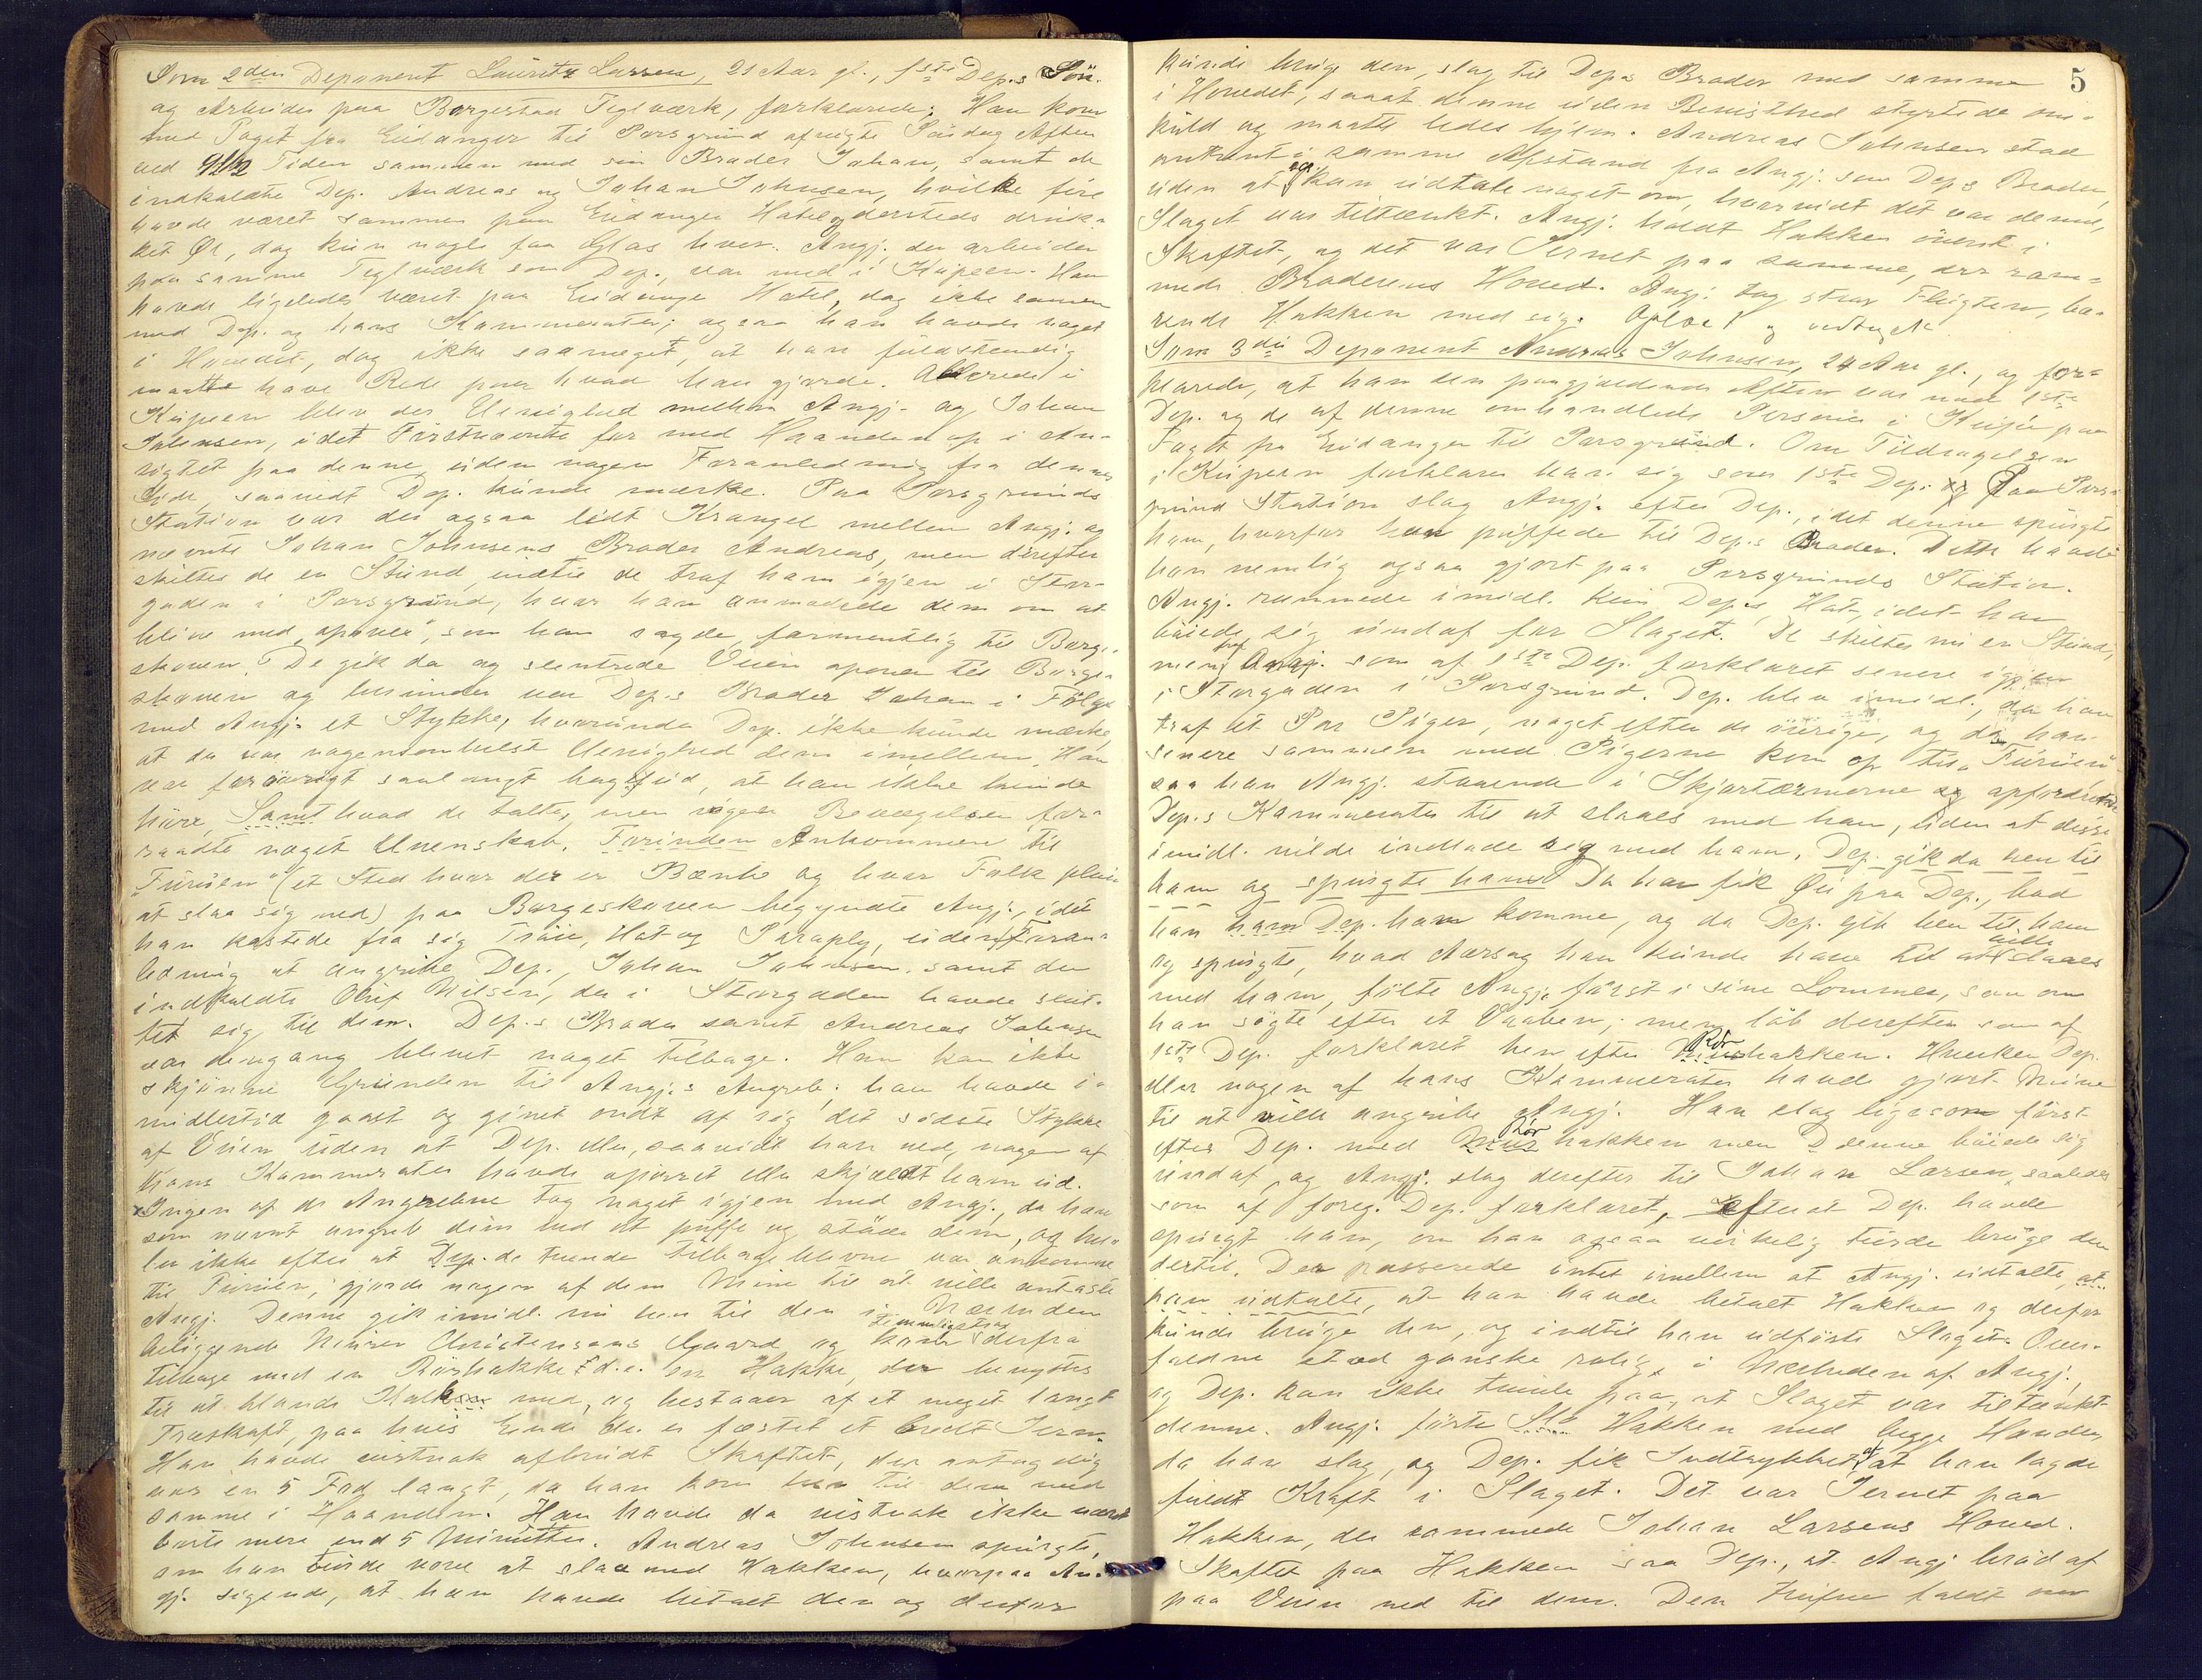 Som 2den Deponent Lauritz Larsen, 21 Aar gl., 1ste Dep.s Søn
og Arbeider paa Borgestad Teglværk, forklarede: Han kom
med Toget fra Eidanger til Porsgrund afvigte Søndag Aften
ved 9 1/2 Tiden sammen med sin Broder Johan, samt de
indkaldte Dep. Andreas og Johan Johnsen, hvilke fire
havde været sammen paa Eidanger Hotel og dersteds druk-
ket Øl, dog kun nogle faa Glas hver. Angj. der arbeider
paa samme Teglværk som Dep., var med i Kupeen. Han
havde ligeledes været paa Eidanger Hotel, dog ikke sammen
med Dep. og hans Kammerater; ogsaa han havde noget
i Hovedet, dog ikke saameget, at han fuldstændig
maatte have Rede paa hvad han gjorde. Allerede i
Kupeen blev der Uenighed mellem Angj. og Johan
Johnsen, idet Førstnævnte for med Haanden op i An-
sigtet paa denne uden nogen Foranledning fra dennes
Side, saavidt Dep. kunde mærke. Paa Porsgrunds
Station var der ogsaa lidt Krangel mellem Angj. og
nævnte Johan Johnsens Broder Andreas, men derefter
skiltes de en Stund, indtil de traf ham igjen i Stor-
gaden i Porsgrund, hvor han anmodede dem om at
blive med "opover", som han sagde, formentlig til Borge-
skoven. De gik da og slentrede Veien opover til Borge-
skoven og herunder var Dep.s Broder Johan i Følge
med Angj. et Stykke, hvorunder Dep. ikke kunde mærke,
at der var nogensomhelst Uenighed dem imellem. Han
var forøvrigt saalangt bagefter, at han ikke kunde
høre, Samt hvad de talte, men ingen Bevægelser for-
raadte noget Uvenskab. Forinden Ankommen til
"Furuen" (et Sted hvor der er Bænke og hvor Folk pleier
at slaa sig ned) paa Borgeskoven begyndte Angj., idet
han kastede fra sig Trøie, Hat og Paraply, uden Foran-
ledning at angribe Dep., Johan Johnsen, samt den
indkaldte Oluf Nilsen, der i Storgaden havde slut-
tet sig til dem. Dep.s Broder samt Andreas Johnsen
var dengang blevet noget tilbage. Han kan ikke
skjønne Grunden til Angj.s Angreb; han havde i-
midlertid gaaet og givet ondt af sig det sidste Stykke
af Veien uden at Dep. eller, saavidt han ved, nogen af
hans Kammerater havde opirret eller skjældt ham ud.
Ingen af de Angrebne tog noget igjen med Angj., da han
som nævnt angreb dem ved at puffe og støde dem, og hel-
ler ikke efter at Dep. de tvende tilbageblevne var ankomne
til Furuen, gjorde nogen af dem Mine til at ville antaste
Angj. Denne gik imidl. nu hen til den i Nærheden
beliggende Murer Christensens Gaard og kom temmeligstrax derfra
tilbage med en Rørhakke d. e. en Hakke, der benyttes
til at blande Kalken med, og bestaar af et meget langt
Træskaft, paa hvis Ende der er fæstet et bredt Jern.
Han havde vistnok afbrudt Skaftet, der antagelig
var en 5 Fod langt, da han kom hen til dem med
samme i Haanden. Han havde da vistnok ikke været
borte mere end 5 Minutter. Andreas Johnsen spurgte,
om han turde vove at slaa med Hakken, hvorpaa An-
gj. sigende, at han havde betalt den og derfor
5
kunde bruge den, slog til Dep.s Broder med samme
i Hovedet, saaat denne uden Bevidsthed styrtede om-
kuld og maatte ledes hjem. Andreas Johnsen stod
omtrent i samme Afstand fra Angj. som Dep.s Broder,
uden at ei kan udtale noget om, hvorvidt det var denne,
Slaget var tiltænkt. Angj. holdt Hakken øverst i
Skaftet, og det var Jernet paa samme, der ram-
mede Broderens Hoved. Angj. tog strax Flugten, ha-
vende Hakken med sig. Oplæst og vedtaget
Som 3die Deponent Andreas Johnsen, 24 Aar gl., og for-
klarede, at han den paagjældende Aften var med 1ste
Dep. og de af denne omhandlede Personer i Kupeen paa
Toget fra Eidanger til Porsgrund. Om Tildragelsen
i Kupeen forklarer han sig som 1ste Dep. og Paa Pors-
grund Station slog Angj. efter Dep., idet denne spurgte
ham, hvorfor han puffede til Dep.s Broder. Dette havde
han nemlig ogsaa gjort paa Porsgrunds Station.
Angj. rammede imidl. kun Dep.s Hat, idet han
bøiede sig undaf for Slaget. De skiltes nu en Stund,
men traf Angj. som af 1ste Dep. forklaret senere igjen
i Storgaden i Porsgrund. Dep. blev imidl., da han
traf et Par Piger, noget efter de øvrige, og da han
senere sammen med Pigerne kom op til "Furuen"
saa han Angj. staaende i Skjortærmerne og opfordrende
Dep.s Kammerater til at slaaes med ham, uden at disse
imidl. vilde indlade sig med ham. Dep. gik da hen til
ham og spurgte ham Da han fik Øie paa Dep., bad
han ham Dep. ham komme, og da Dep. gik hen til ham
og spurgte, hvad Aarsag han kunde have til at ville slaaes
med ham, følte Angj. først i sine Lommer, som om
han søgte efter et Vaaben; men løb derefter som af
1ste Dep. forklaret hen efter Rørhakken. Hverken Dep.
eller nogen af hans Kammerater havde gjort Mine
til at ville angribe Angj. Han slog ligesom først
efter Dep. med Rørhakken men denne bøiede sig
undaf, og Angj. slog derefter til Johan Larsen, saaledes
som af foreg. Dep. forklaret, efterat Dep. havde
spurgt ham, om han ogsaa virkelig turde bruge den
dertil. Der passerede intet imellem at Angj. udtalte, at
han udtalte, at han havde betalt Hakken og derfor
kunde bruge den, og indtil han udførte Slaget. Over-
faldne stod ganske rolig i Nærheden af Angj.,
og Dep. kan ikke tvivle paa, at Slaget var tiltænkt
denne. Angj. førte Sla Hakken med begge Hænder
da han slog, og Dep. fik Indtrykket af at han lagde
fuldt Kraft i Slaget. Det var Jernet paa
Hakken, der rammede Johan Larsens Hoved.
Skaftet paa Hakken saa Dep., at Angj. brød af
paa Veien ned til dem. Den Trufne faldt om